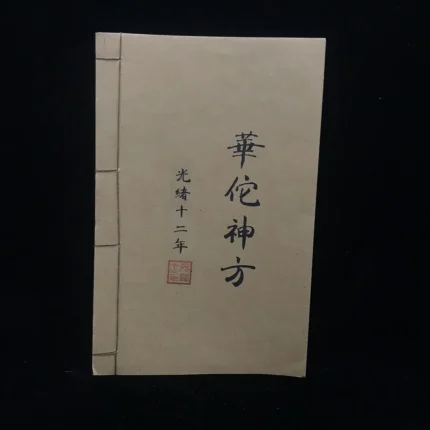 華佗神方
光緒十二年